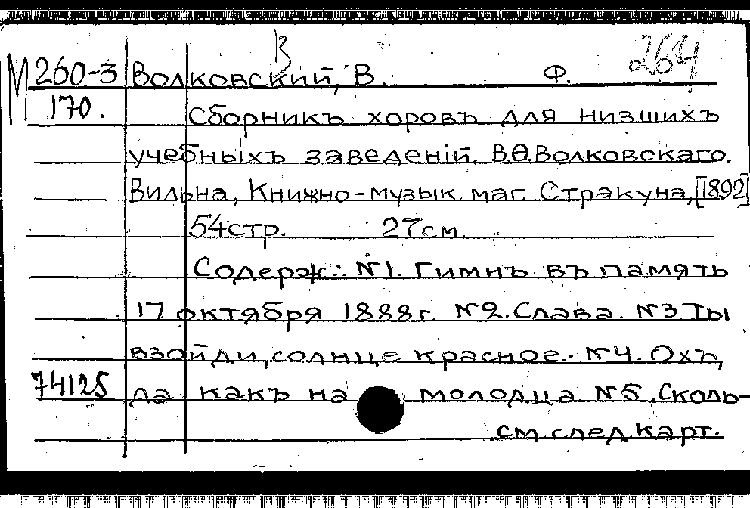 В
264
М 260-3 Волковский, В. Ф.
170. Сборникъ хоровъ для низшихъ
учебныхъ заведеній. В.Ѳ.Волковскаго.
Вильна, Книжно-музык. маг. Стракуна, [1892]
54стр. 27см.
Содерж.: №1. Гимнъ въ память
17 октября 1888г. №2. Слава. №3 Ты
взойди, солнце красное. №4. Охъ,
74125 да какъ на молодца №5. Сколь-
см. след. карт.